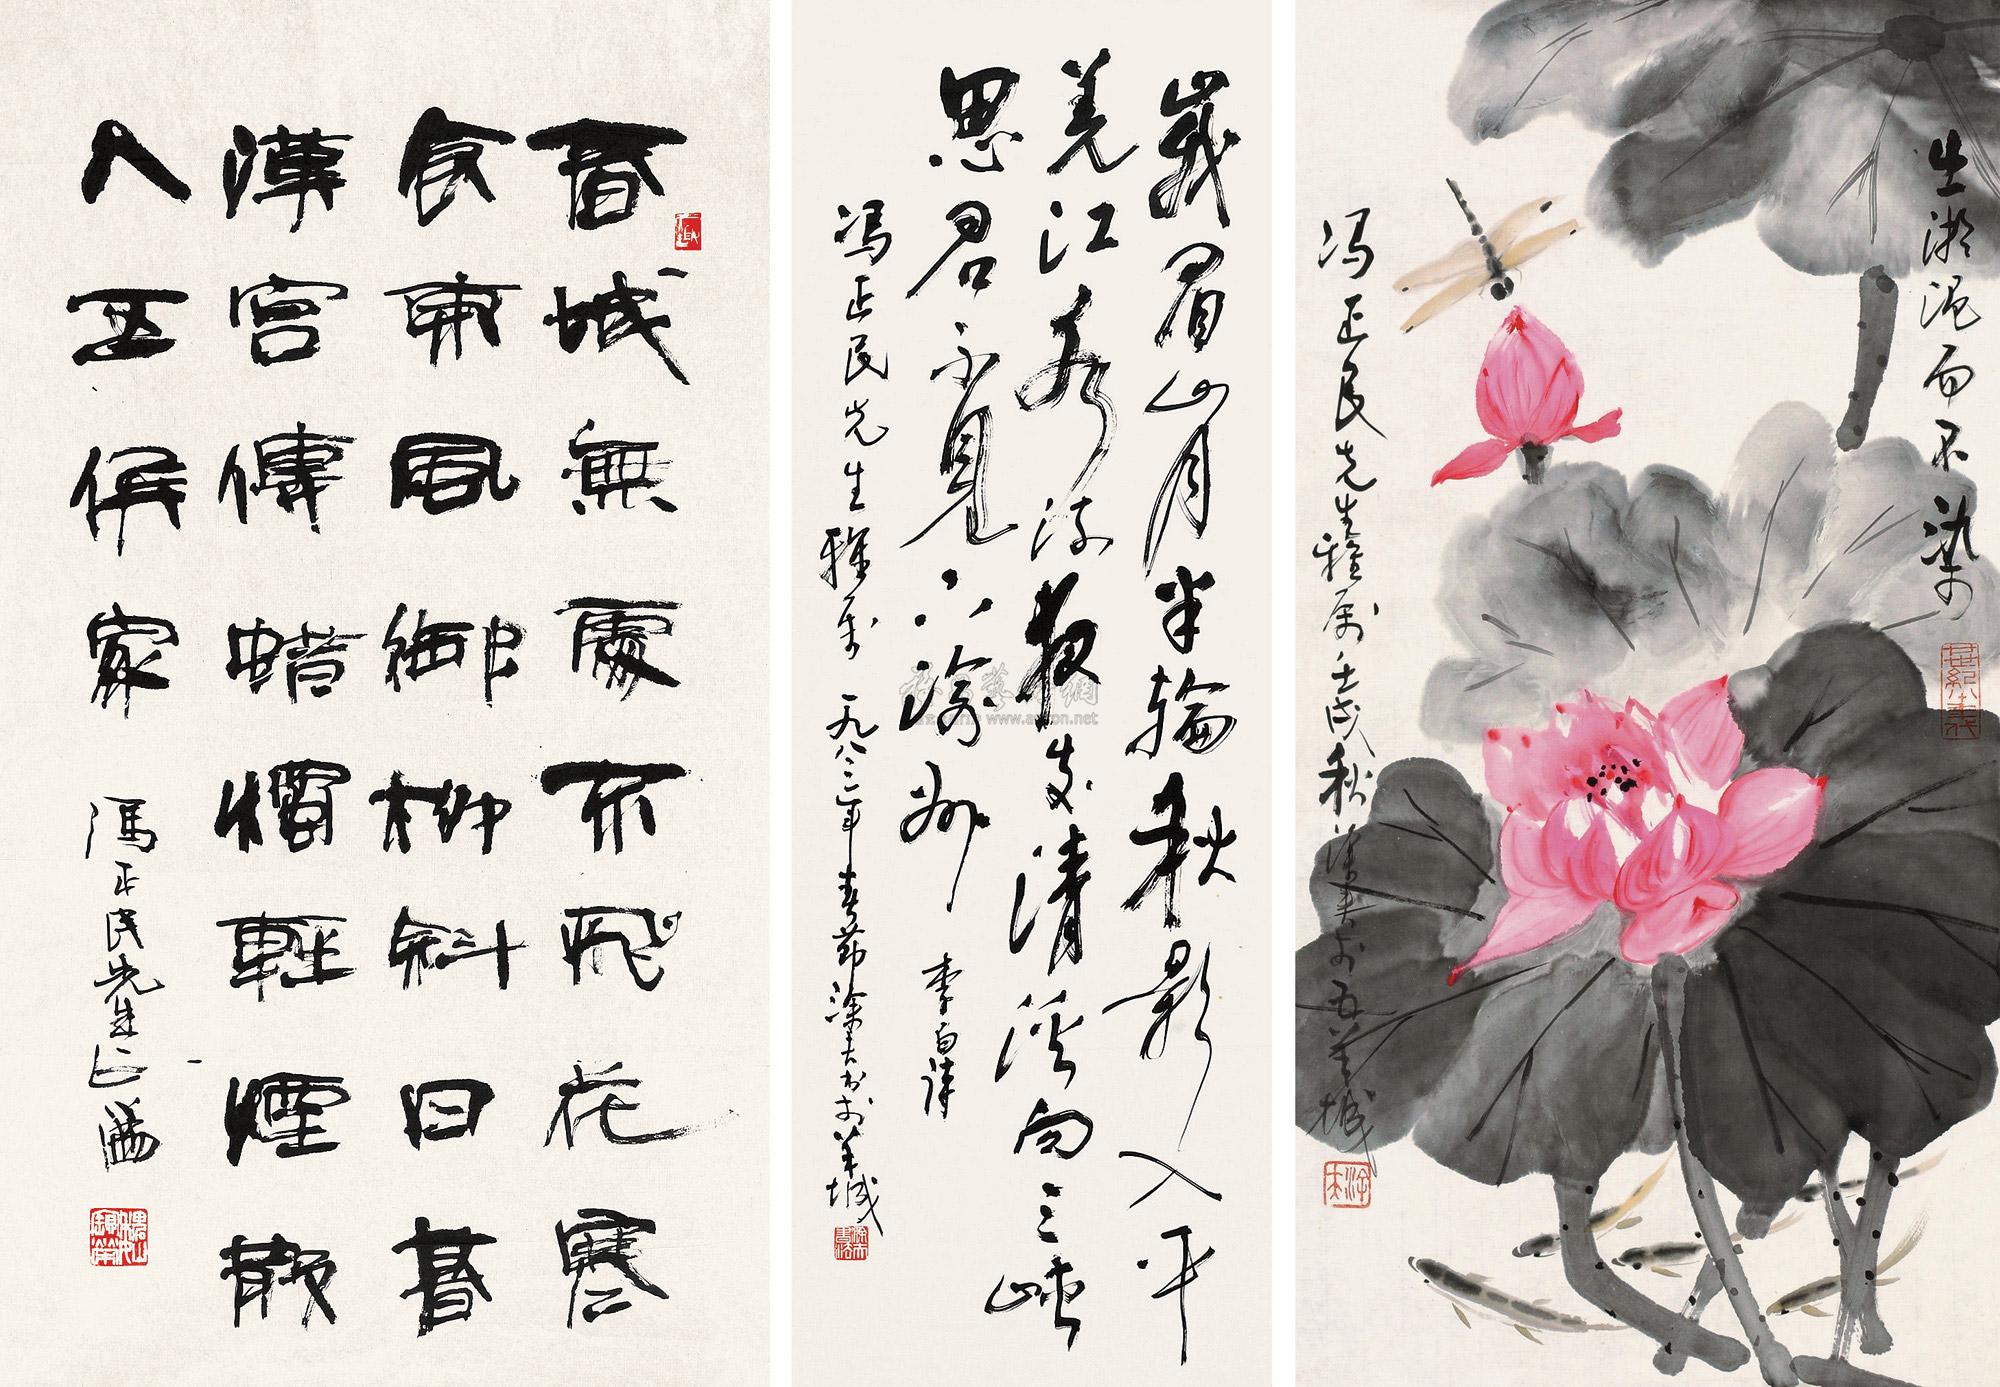 春城無處不飛花寒
食東風御柳斜日暮
漢宮傳蠟燭輕煙散
入五侯家
馮正民先生正
峨眉山月半輪秋影入平
羌江水流夜發清溪向三峽
思君不見下渝州
李白詩
冯正民先生雅属 一九八二年春節涂夫书于羊城
www.artron.net
出淤泥而不染
冯正民先生雅属壬戌秋涂夫于五羊城